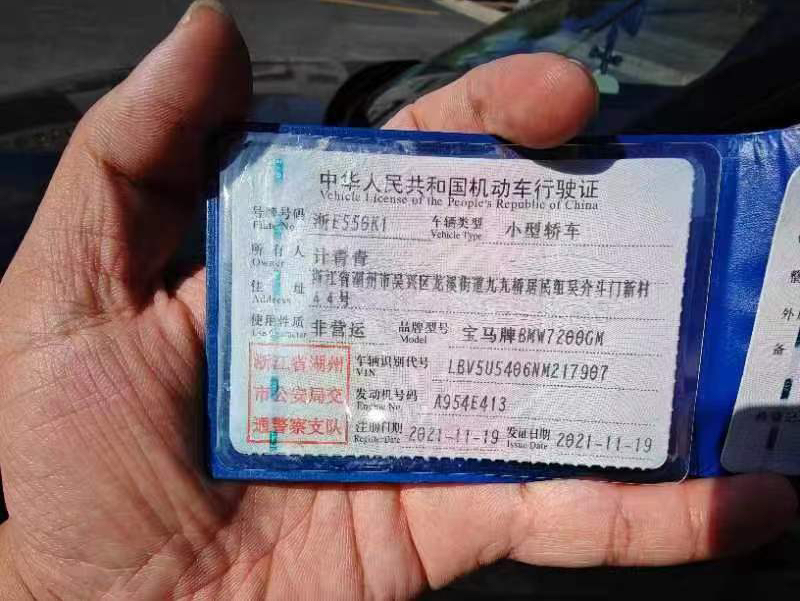 中华人民共和国机动车行驶证
Vehicle License of the People's Republic of China
号牌号码 浙E550K1 车辆类型 小型轿车
Plate No. Vehicle Type
所有人 计青青
Owner
住址 浙江省湖州市吴兴区龙溪街道九九桥居民组吴介斗门新村
Address 44号
使用性质 非营运 品牌型号 宝马牌BMW7200GM
Use Character Model
浙江省湖州
市公安局交
通警察支队
车辆识别代号 LBV5U5406NM217907
VIN
发动机号码 A954E413
Engine No.
注册日期 2021-11-19 发证日期 2021-11-19
Register Date Issue Date
整
外
备